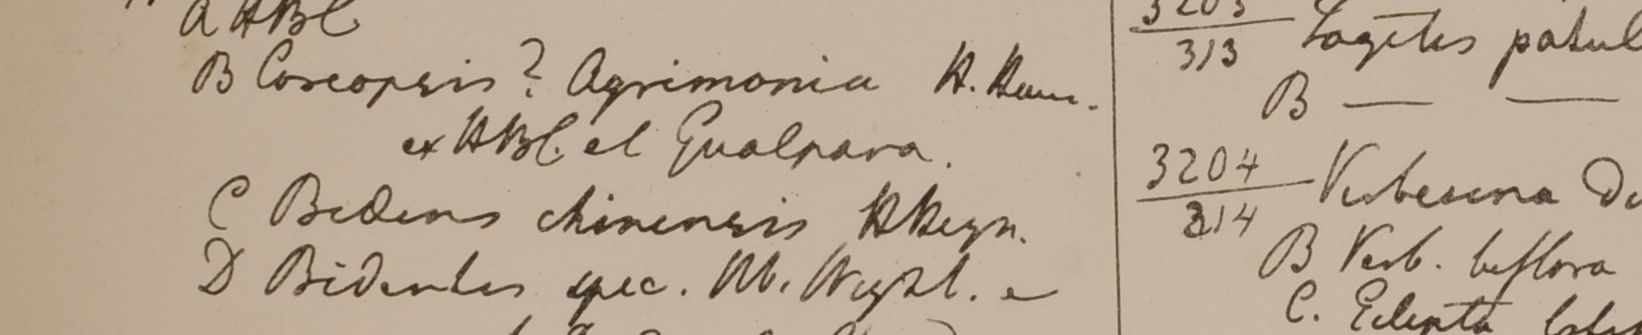 A HBC
B Coreopsis? Agrimonia H. Ham.
ex HBC. et Gualpara.
C Bidens chinensis H Heyn.
D Bidentes spec. M. Wight. e
3203
313 Tagetes patul
B — —
3204
314 Verbesina Di
B Verb. biflora
C. Eclipta